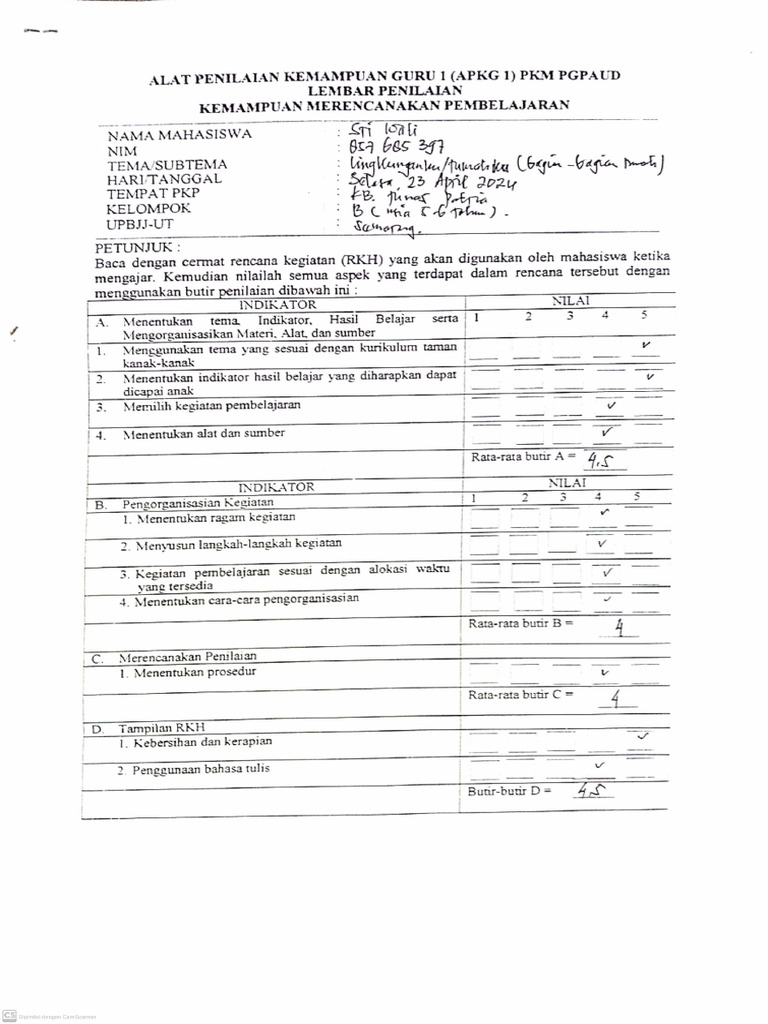 ALAT PENILAIAN KEMAMPUAN GURU 1 (APKG 1) PKM PGPAUD
LEMBAR PENILAIAN
KEMAMPUAN MERENCANAKAN PEMBELAJARAN
NAMA MAHASISWA : Sri
NIM : 857 685 397
TEMA/SUBTEMA : Lingkunganku/Rumahku (bagian-bagian rumah)
HARI/TANGGAL : Selasa, 23 April 2024
TEMPAT PKP : KB. Tunas
KELOMPOK : B (usia 5-6 tahun).
UPBJJ-UT : Semarang.
PETUNJUK :
Baca dengan cermat rencana kegiatan (RKH) yang akan digunakan oleh mahasiswa ketika
mengajar. Kemudian nilailah semua aspek yang terdapat dalam rencana tersebut dengan
menggunakan butir penilaian dibawah ini :
INDIKATOR NILAI
A. Menentukan tema, Indikator, Hasil Belajar serta 1 2 3 4 5
Mengorganisasikan Materi, Alat, dan sumber
1. Menggunakan tema yang sesuai dengan kurikulum taman ✓
kanak-kanak
2. Menentukan indikator hasil belajar yang diharapkan dapat ✓
dicapai anak
3. Memilih kegiatan pembelajaran ✓
4. Menentukan alat dan sumber ✓
Rata-rata butir A = 4,5
INDIKATOR NILAI
B. Pengorganisasian Kegiatan 1 2 3 4 5
1. Menentukan ragam kegiatan ✓
2. Menyusun langkah-langkah kegiatan ✓
3. Kegiatan pembelajaran sesuai dengan alokasi waktu ✓
yang tersedia
4. Menentukan cara-cara pengorganisasian ✓
Rata-rata butir B = 4
C. Merencanakan Penilaian
1. Menentukan prosedur ✓
Rata-rata butir C = 4
D. Tampilan RKH
1. Kebersihan dan kerapian ✓
2. Penggunaan bahasa tulis ✓
Butir-butir D = 4,5
CS Dipindai dengan CamScanner